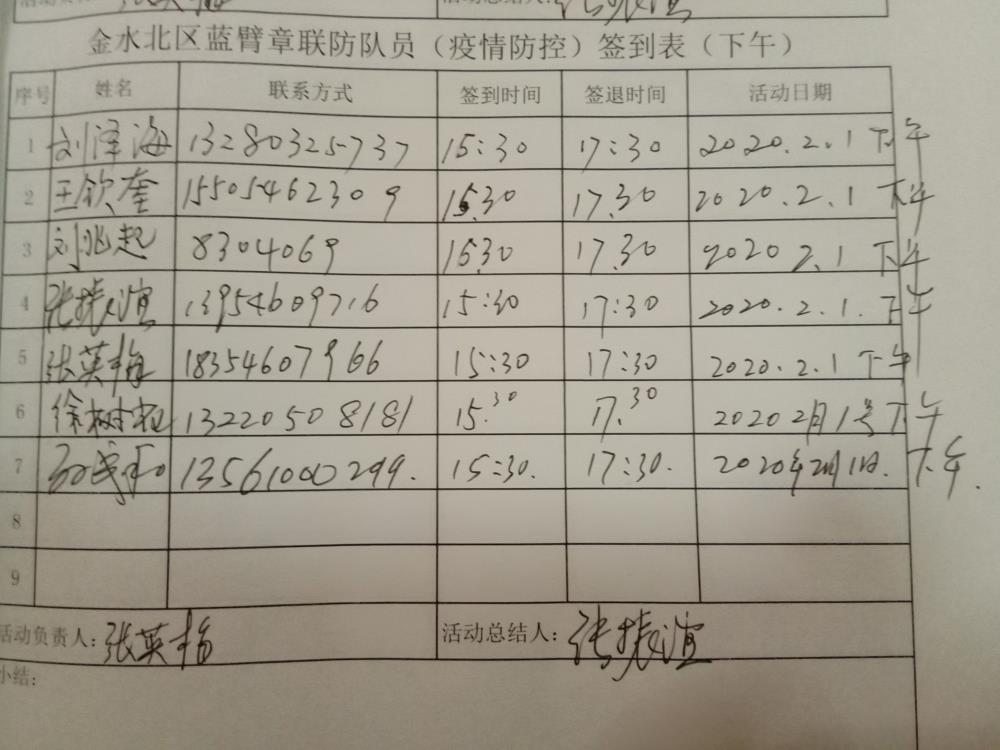 活动总结人：张振谊
金水北区蓝臂章联防队员（疫情防控）签到表（下午）
序号 姓名 联系方式 签到时间 签退时间 活动日期
1 刘泽海 13280325737 15:30 17:30 2020.2.1 下午
2 王钦奎 15505462309 15.30 17.30 2020.2.1 下午
3 刘兆起 8304069 15.30 17.30 2020 2.1 下午
4 张振谊 13954609716 15:30 17:30 2020.2.1. 下午
5 张英梅 18354607966 15:30 17:30 2020.2.1 下午
6 徐树 13220508181 15.30 17.30 2020 2月1号下午
7 13561000299. 15:30. 17:30. 2020年2月1日. 下午.
8
9
活动负责人：张英梅 活动总结人：张振谊
小结：